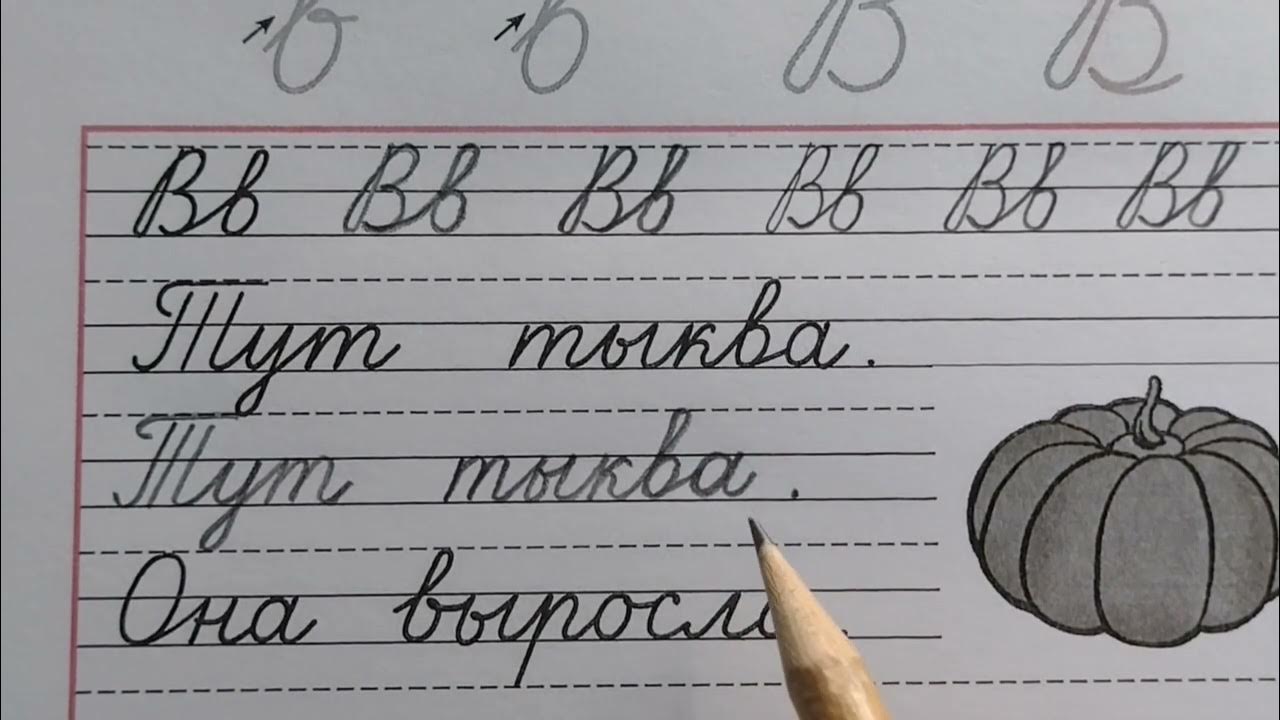 в в В В
Вв Вв Вв Вв Вв Вв
Тут тыква.
Тут тыква.
Она выросла.